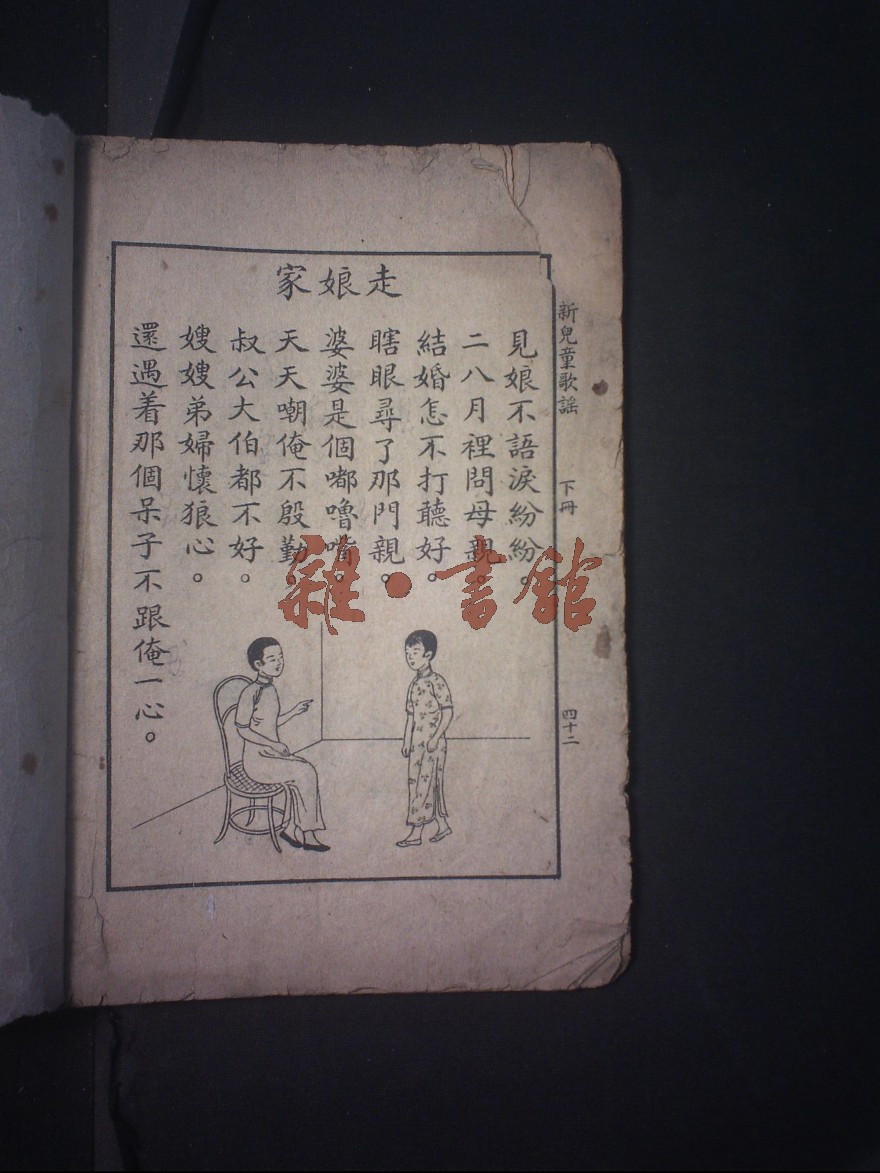 新兒童歌謡 下冊 四十二
走娘家
見娘不語淚紛紛。
二八月裡問母親。
結婚怎不打聽好。
瞎眼尋了那門親。
婆婆是個嘟嚕嘴。
天天嘲俺不殷勤。
叔公大伯都不好。
嫂嫂弟婦懷狼心。
還遇着那個呆子不跟俺一心。
雜·書館